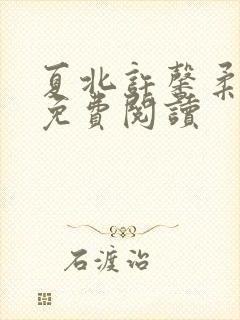 夏北許馨柔
免費閱讀
石渡治